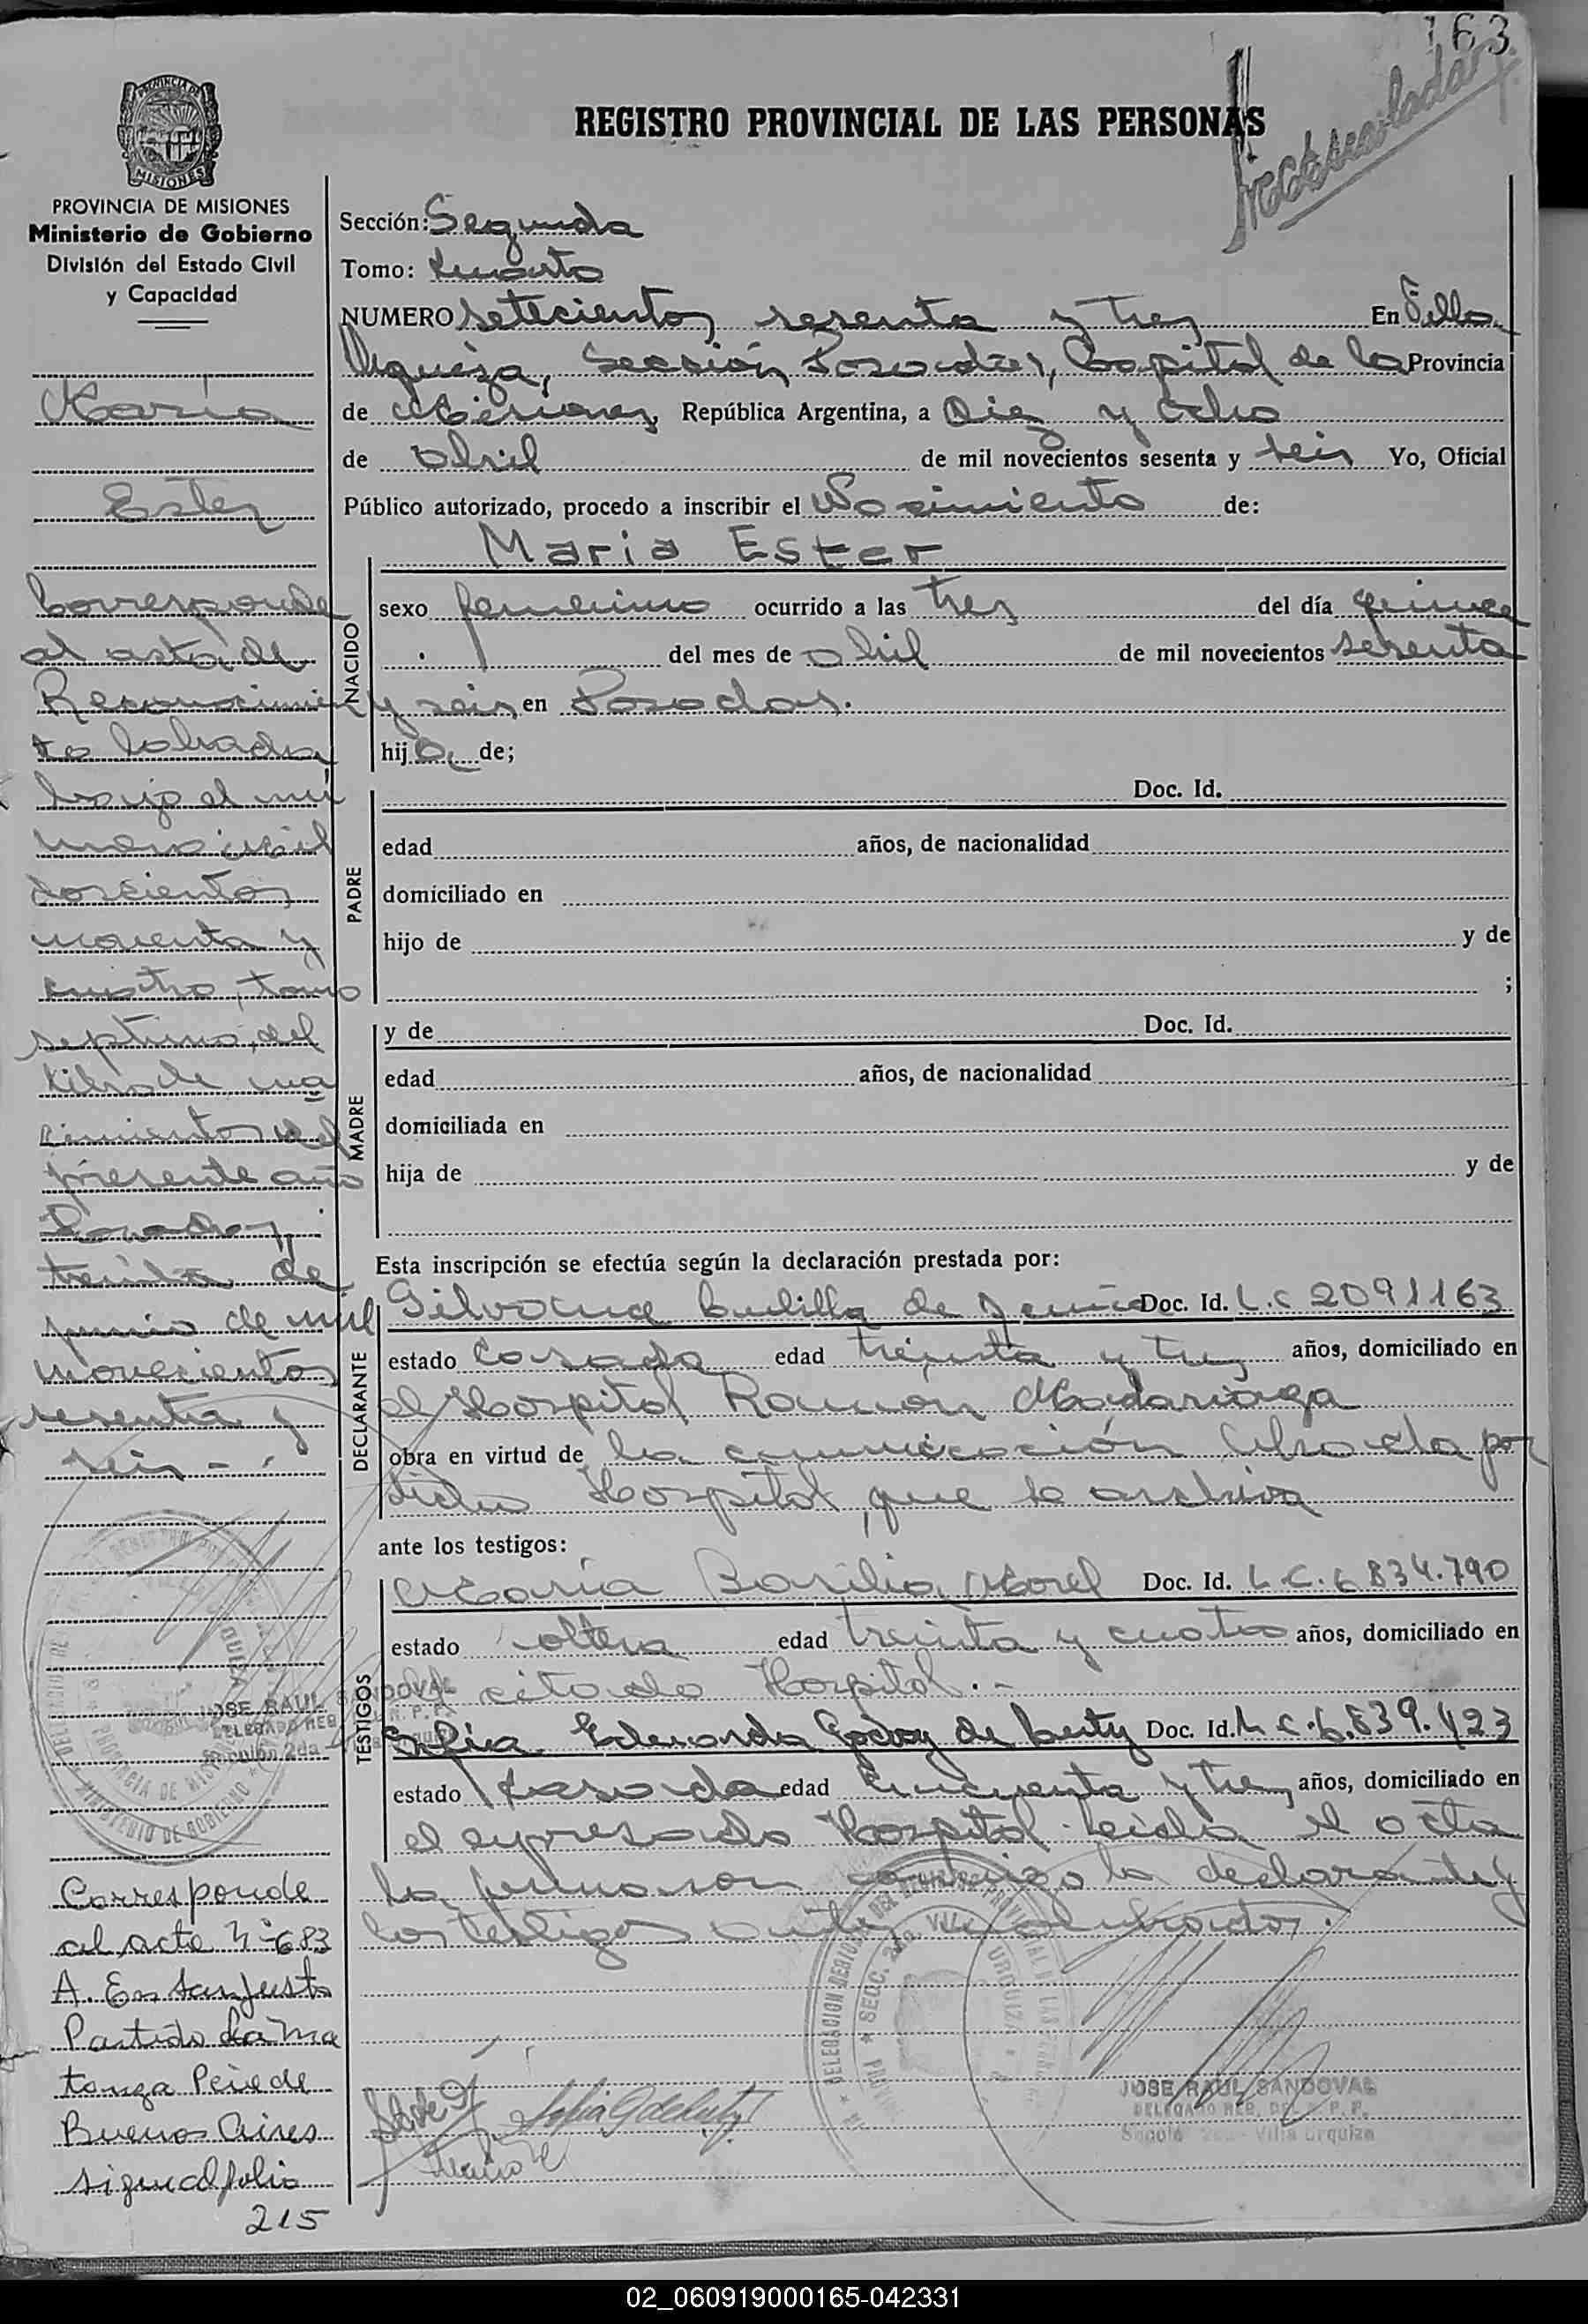 163
REGISTRO PROVINCIAL DE LAS PERSONAS
PROVINCIA DE MISIONES
Ministerio de Gobierno
División del Estado Civil
y Capacidad
María
Ester
Corresponde
al acta de
Reconocimien
to labrada
bajo el nú
mero mil
doscientos
noventa y
cuatro, tomo
septimo, del
Libro de na
cimientos del
presente año
Posadas,
treinta de
junio de mil
novecientos
sesenta y
seis - .
JOSE RAUL SANDOVAL
Corresponde
al acta Nº 683
A. En San Justo
Partido La Ma
tanza Pcia de
Buenos Aires
sigue al folio
215
Sección: Segunda
Tomo: Cuarto
NUMERO Setecientos sesenta y tres En Villa
Urquiza, Sección Posadas, Capital de la Provincia
de Misiones, República Argentina, a Diez y Ocho
de Abril de mil novecientos sesenta y seis Yo, Oficial
Público autorizado, procedo a inscribir el Nacimiento de:
Maria Ester
NACIDO
sexo femenino ocurrido a las tres del día quince
del mes de abril de mil novecientos sesenta
y seis en Posadas.
hija de;
PADRE
Doc. Id.
edad años, de nacionalidad
domiciliado en
hijo de y de
;
MADRE
y de Doc. Id.
edad años, de nacionalidad
domiciliada en
hija de y de
Esta inscripción se efectúa según la declaración prestada por:
DECLARANTE
de Doc. Id. L.C 2091163
estado Casada edad treinta y tres años, domiciliado en
el Hospital Ramón Madariaga
obra en virtud de la comunicación librada por
dicho Hospital, que se archiva
ante los testigos:
TESTIGOS
María Basilia Morel Doc. Id. L.C. 6 834.790
estado soltera edad treinta y cuatro años, domiciliado en
el citado Hospital. -
Edelvarda Godoy de Doc. Id. L C. 6.839.423
estado Casada edad cincuenta y tres años, domiciliado en
el expresado Hospital. Leida el acta
la firmaron conmigo la declarante y
los testigos antes nombrados.
JOSE RAUL SANDOVAL
DELEGADO REG. DEL R. P. P.
Sección 2da - Villa Urquiza
02_060919000165-042331